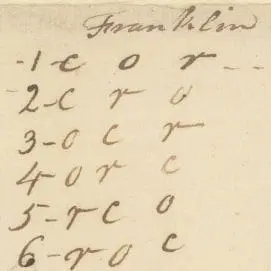 Franklin
-1-c o r - -
2-c r o
3-o c r
4 o r c
5-r c o
6-r o c